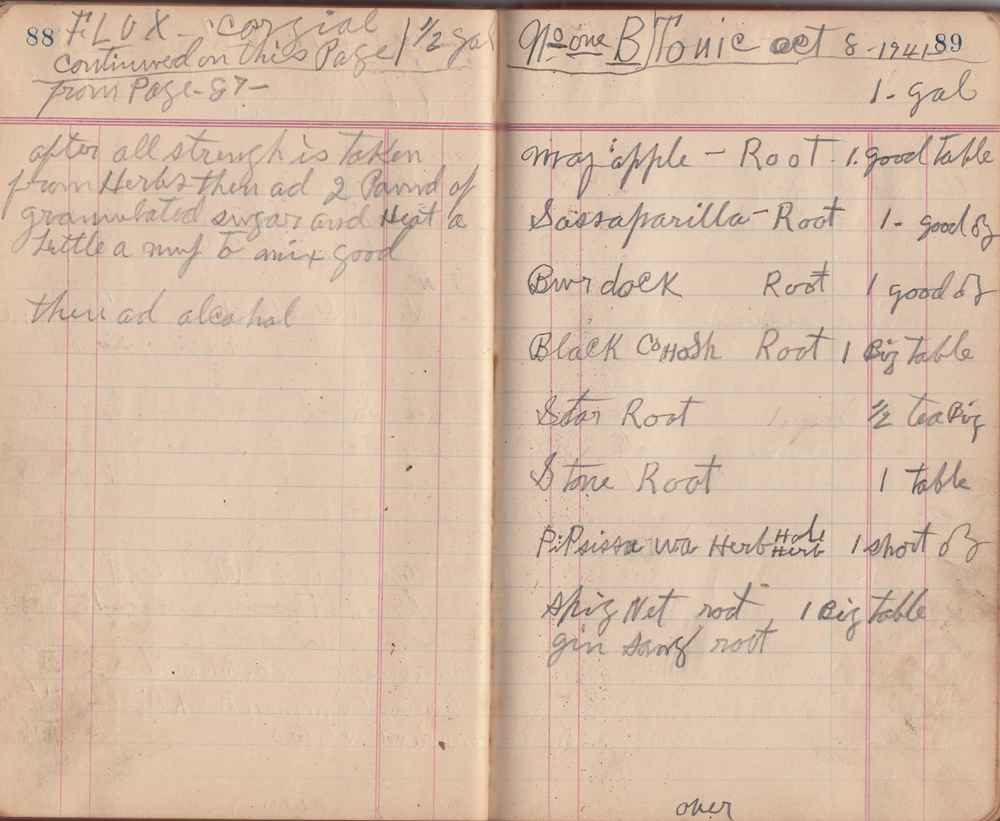 88 FLUX - corzial 1 1/2 gal
continued on this Page
from Page - 87 -
after all strengh is taken
from Herbs then ad 2 Pound of
granulated sugar and Heat a
little a nuf to mix good
then ad alcohal
No one B Tonic oct 8 - 1941 89
1 - gal
may apple - Root 1. good table
Sassaparilla - Root 1 - good oz
Burdock Root 1 good oz
Black CoHosh Root 1 Big table
Star Root 1/2 tea Big
Stone Root 1 table
PiPsissa wa Herb Hole Herb 1 short oz
Spig Net root 1 Big table
gin sang root
over